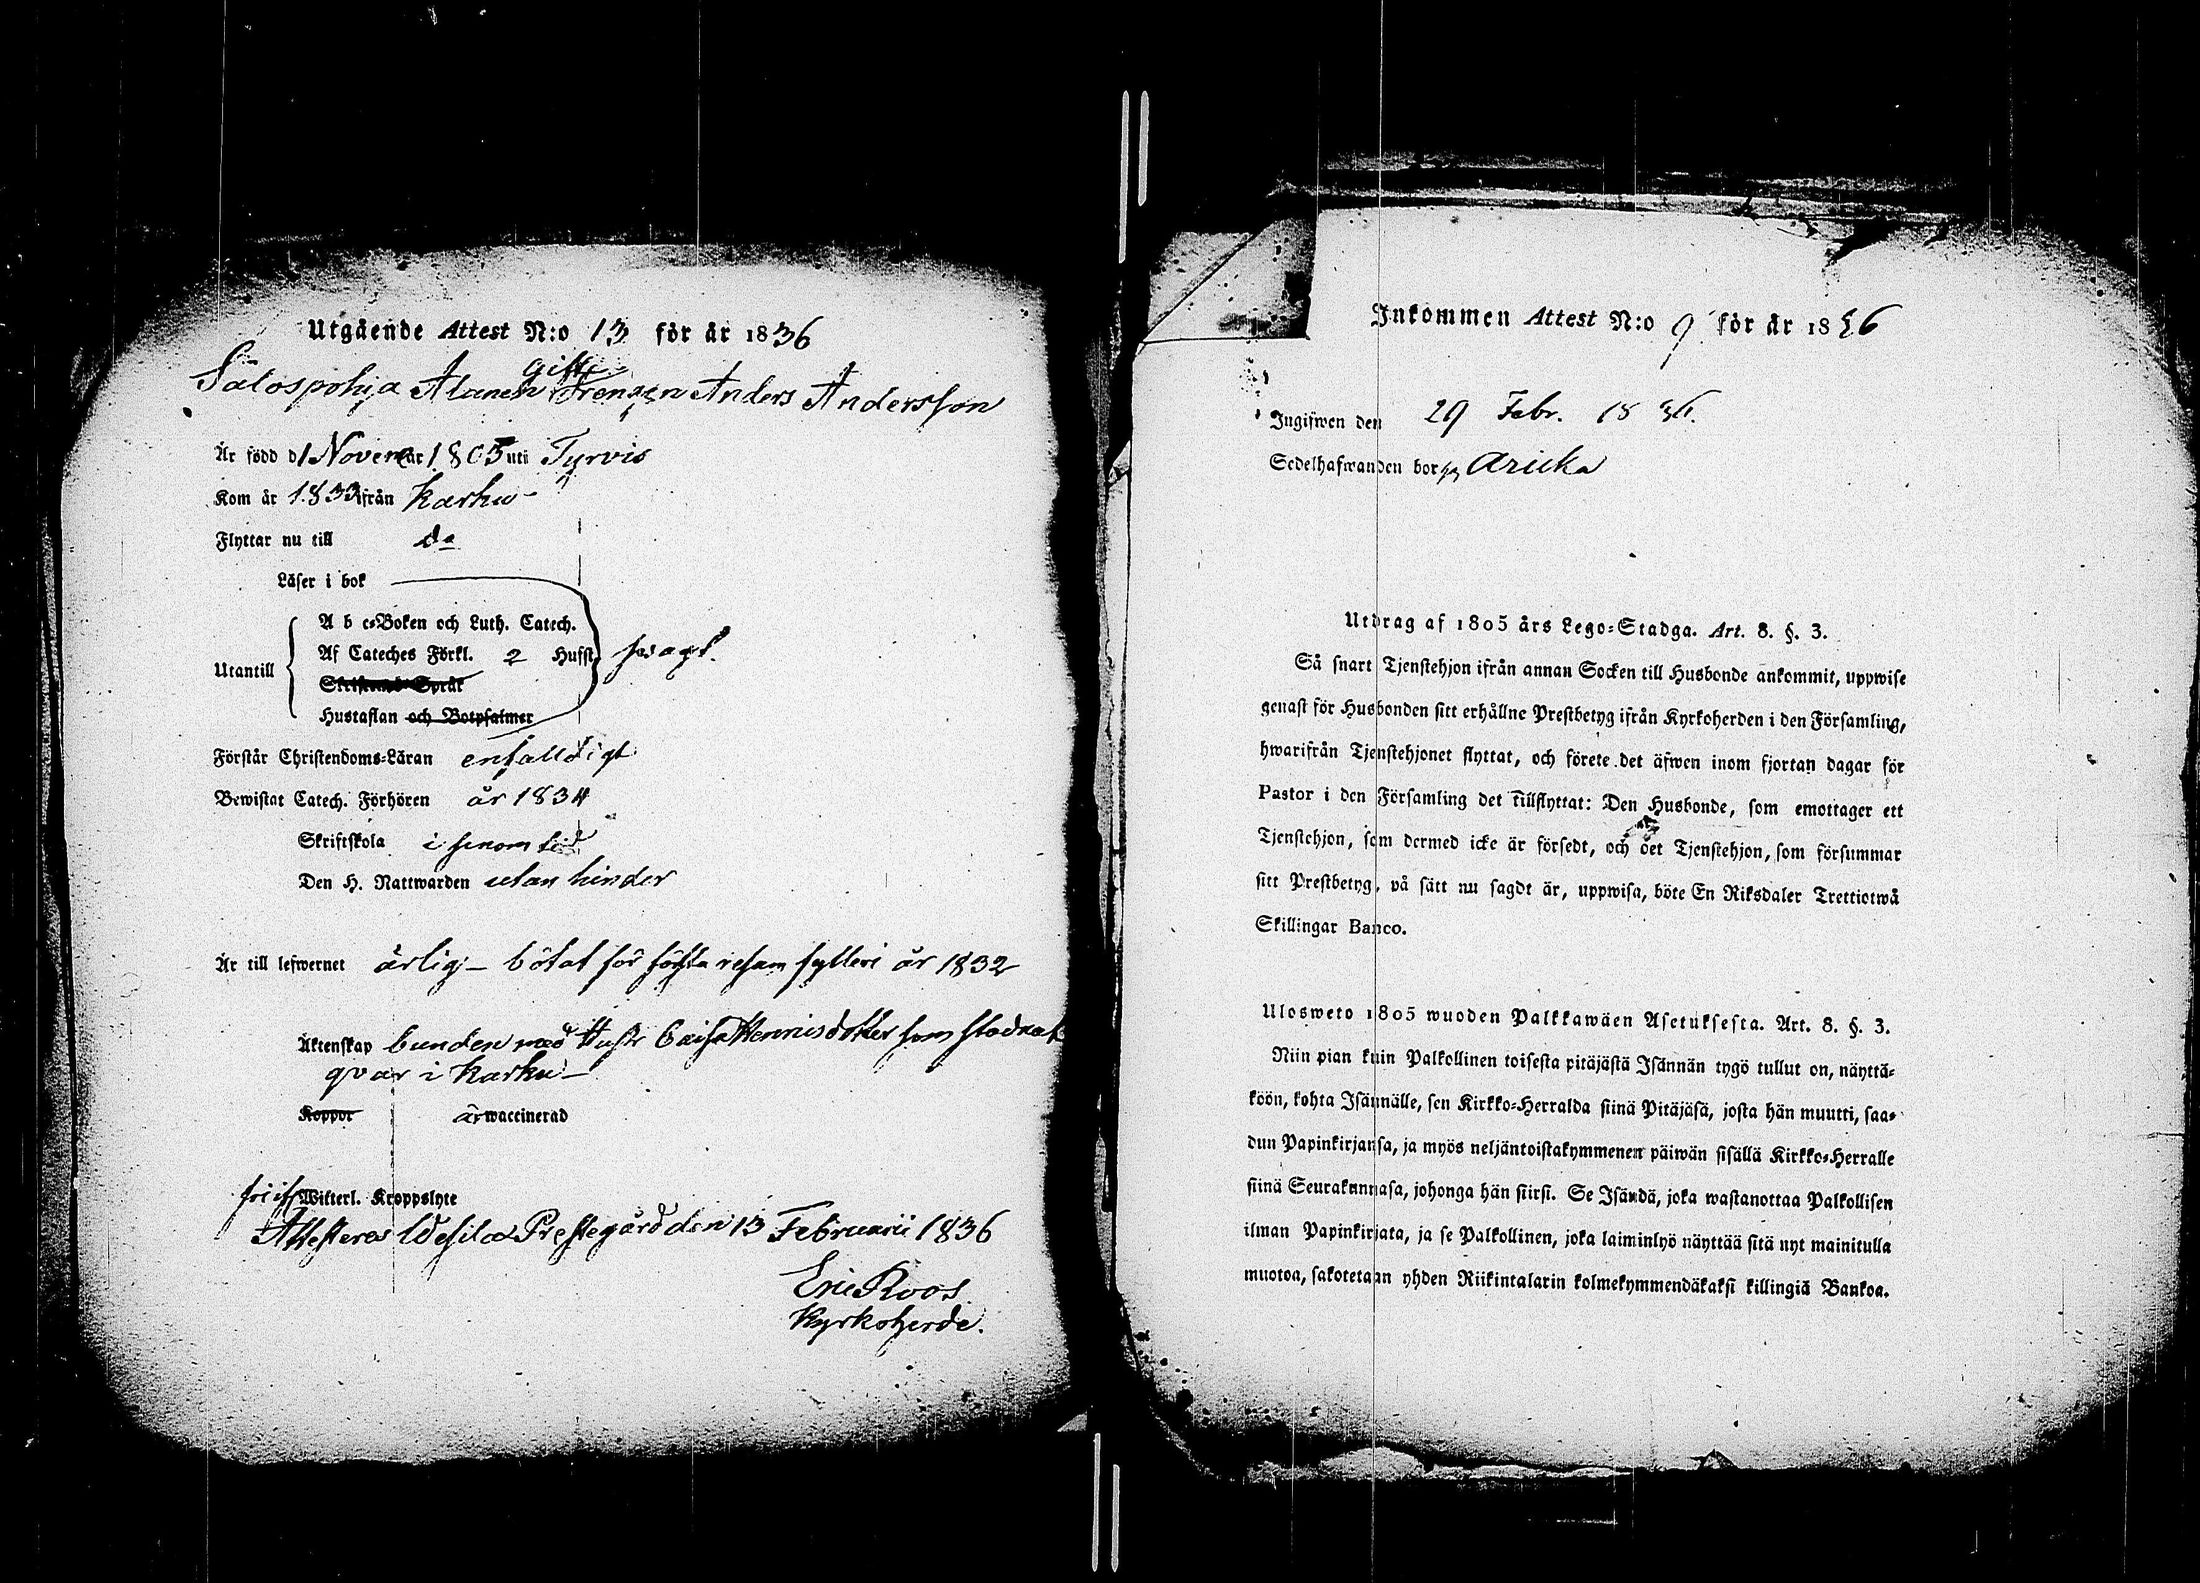 Utgående Attest N:o 13 för år 1836
gifte
Salospohja Alanen Drengen Anders Andersson
Är född d 1 Novem år 1805 uti Tyrvis
Kom år 1833 ifrån Karku
Flyttar nu till do
Läser i bok
A b c-Boken och Luth. Catech.
Af Cateches Förkl. 2 Hufst. svagt.
Utantill
Skriftenes Språk
Hustaflan och Botpsalmer
Förstår Christendoms-Läran enfalldigt
Bewistat Catech. Förhören år 1834
Skriftskola i sinom tid
Den H. Nattwarden utan hinder
Är till lefwernet ärlig; – bötat för första resan fylleri år 1832
Äktenskap bunden med Hustr Caisa Henricsdotter som stadnat
qvar i Karku –
Koppor är waccinerad
fri ifr Wikterl. Kroppslyte
Attesteras Wesilax Prestegård den 13 Februarii 1836
Eric Roos
Kyrkoherde.
Inkommen Attest N:o 9 för år 1836
Ingifwen den 29 Febr. 1836.
Sedelhafwanden bor på
Utdrag af 1805 års Lego-Stadga. Art. 8. §. 3.
Så snart Tjenstehjon ifrån annan Socken till Husbonde ankommit, uppwise
genast för Husbonden sitt erhållne Prestbetyg ifrån Kyrkoherden i den Församling,
hwarifrån Tjenstehjonet flyttat, och förete det äfwen inom fjortan dagar för
Pastor i den Församling det tillflyttat: Den Husbonde, som emottager ett
Tjenstehjon, som dermed icke är försedt, och det Tjenstehjon, som försummar
sitt Prestbetyg, på sätt nu sagdt är, uppwisa, böte En Riksdaler Trettiotwå
Skillingar Banco.
Ulosweto 1805 wuoden Palkkawäen Asetuksesta. Art. 8. §. 3.
Niin pian kuin Palkollinen toisesta pitäjästä Isännän tygö tullut on, näyttä-
köön, kohta Isännälle, sen Kirkko-Herralda siinä Pitäjäsä, josta hän muutti, saa-
dun Papinkirjansa, ja myös neljäntoistakymmenen päiwän sisällä Kirkko-Herralle
siinä Seurakunnasa, johonga hän siirsi. Se Isändä, joka wastanottaa Palkollisen
ilman Papinkirjata, ja se Palkollinen, joka laiminlyö näyttää sitä nyt mainitulla
muotoa, sakotetaan yhden Riikintalarin kolmekymmendäkaksi killingiä Bankoa.